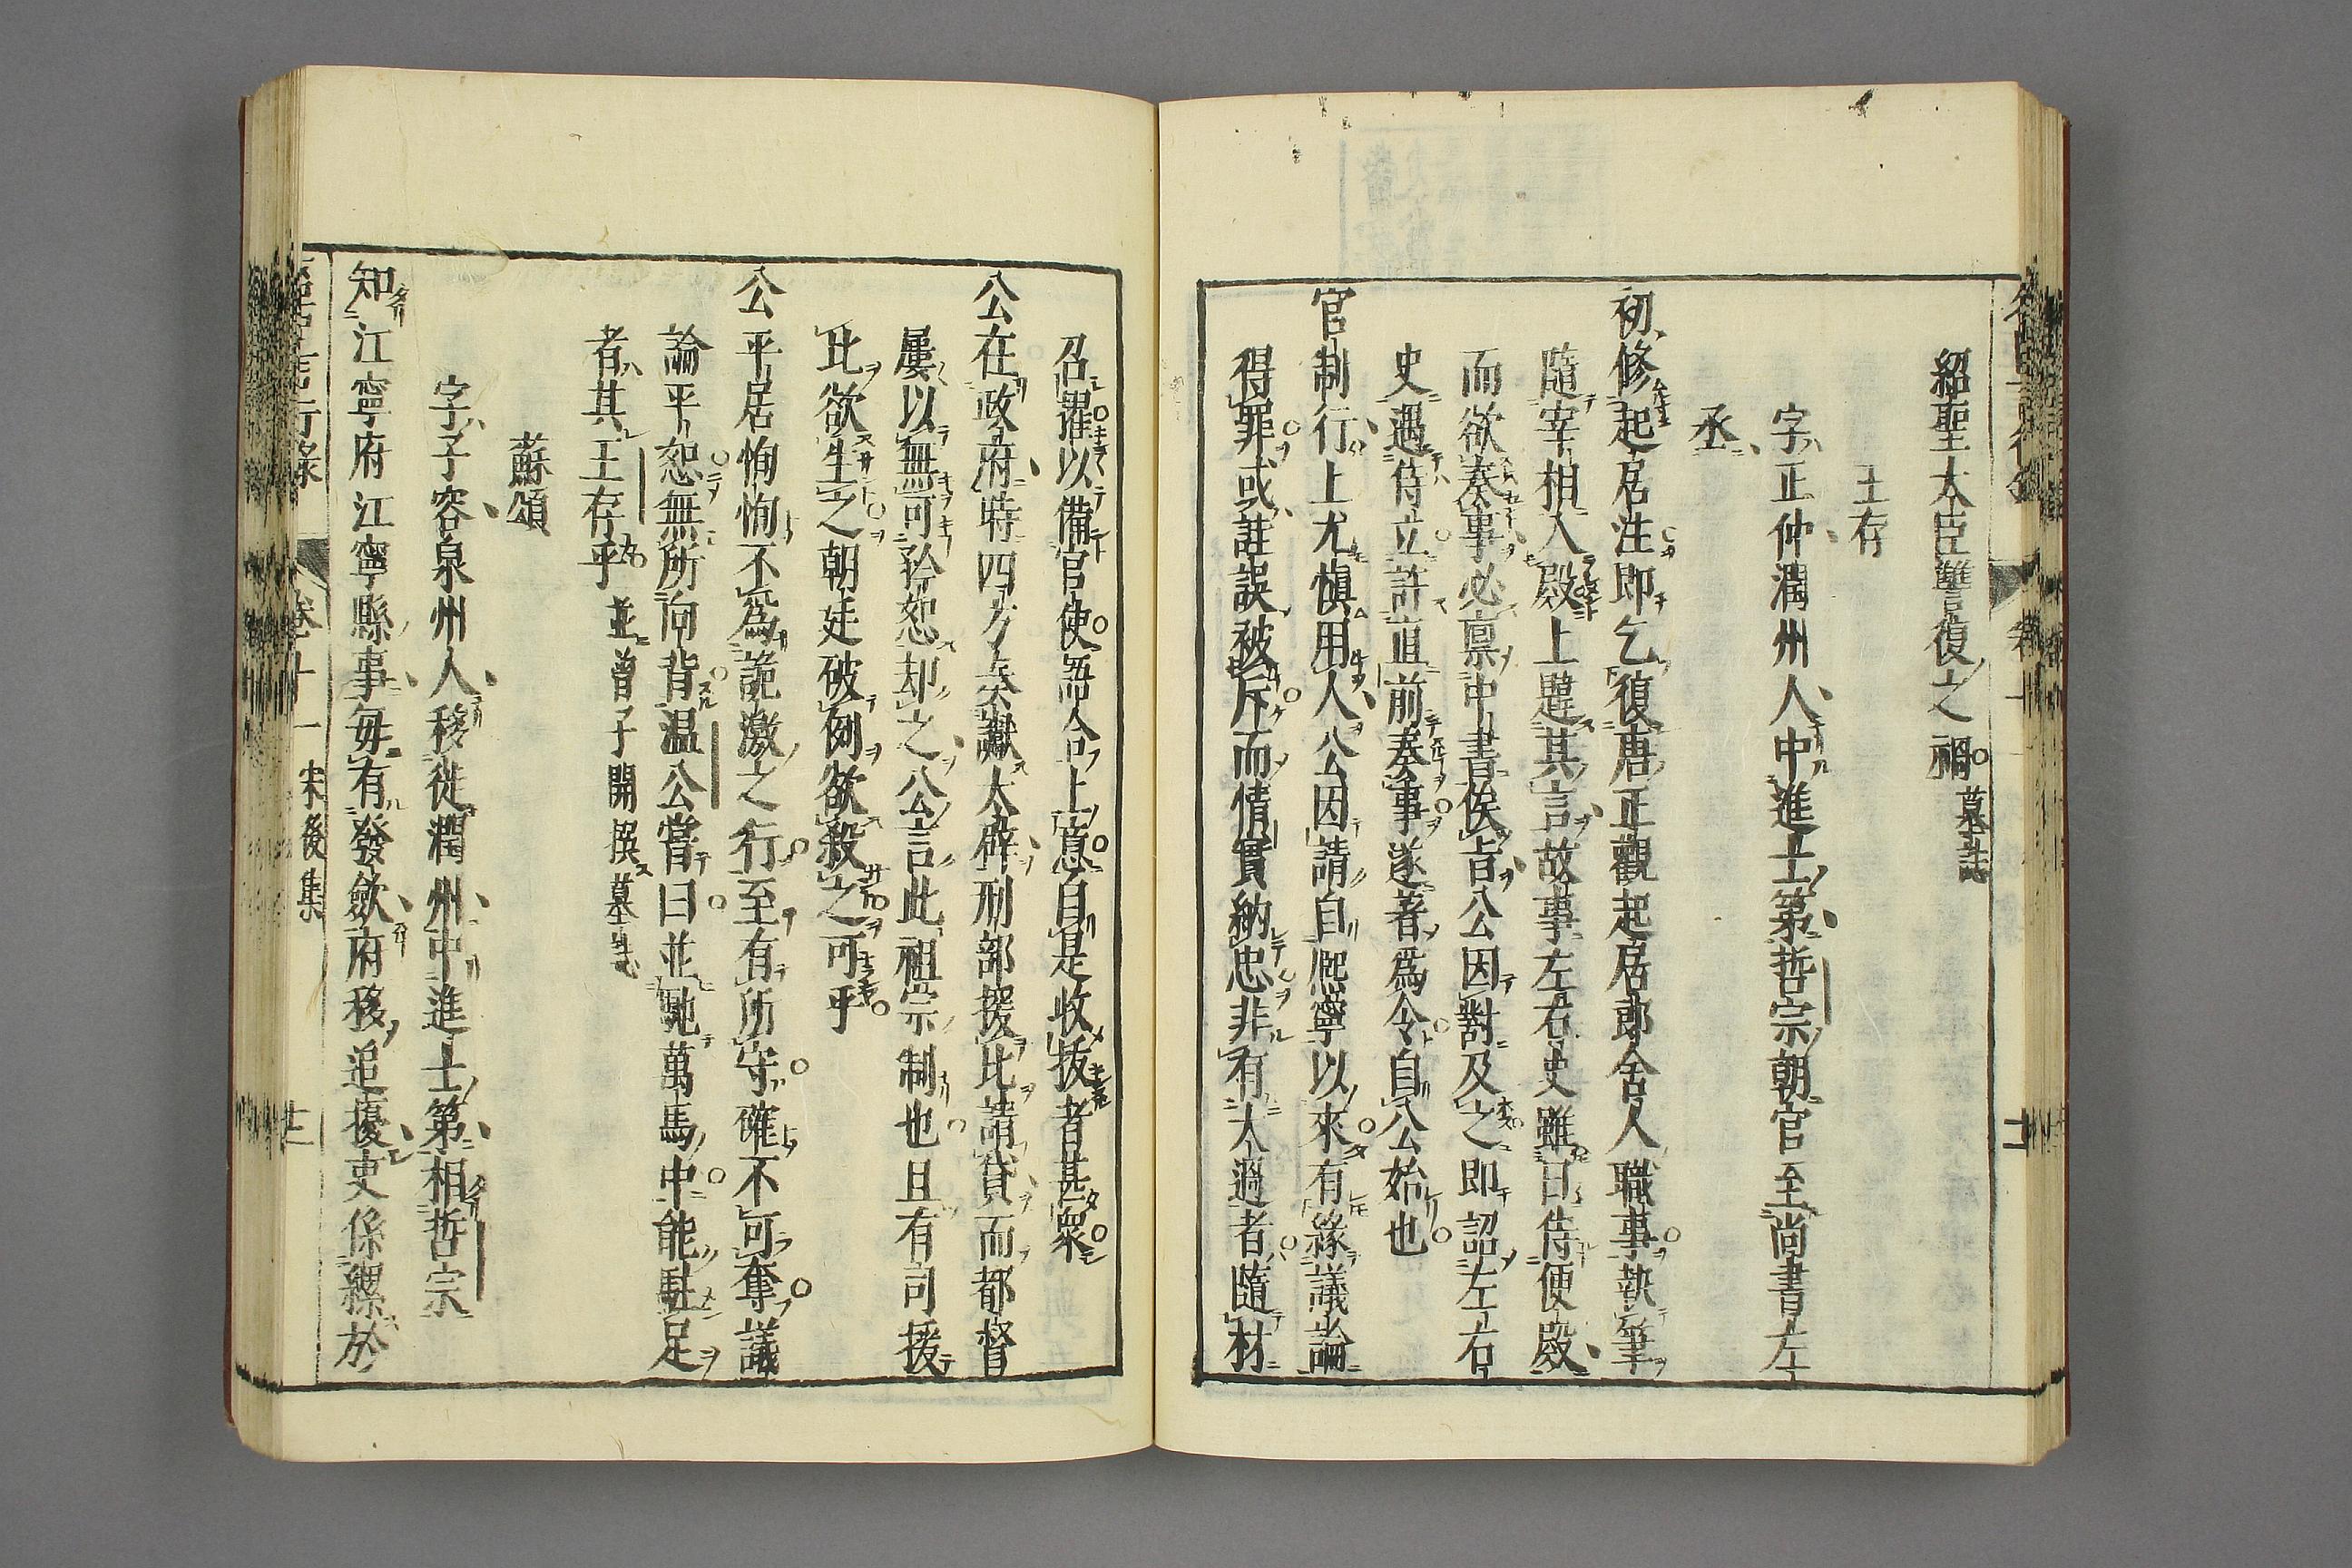 紹聖大臣讐復之禍 墓誌
王存
字正仲潤州人中進士第哲宗朝官至尚書左
丞
初修起居注即乞復唐正觀起居郎舍人職事執筆
隨宰相入殿上韙其言故事左右史雖日侍便殿
而欲奏事必稟中書俟旨公因對及之即詔左右
史遇侍立許直前奏事遂著為令自公始也
官制行上尤慎用人公因請自熈寧以來有緣議論
得罪或註誤被斥而情實納忠非有大過者隨材
召擢以備官使語合上意自是收拔者甚衆
公在政府時四方奏讞大辟刑部援比請貸而都督
屢以無可矜恕却之公言此祖宗制也且有司援
比欲生之朝廷破例欲殺之可乎
公平居恂恂不為詭激之行至有所守確不可奪議
論平恕無所向背温公嘗曰並馳萬馬中能駐足
者其王存乎 並曾子開撰墓誌
蘇頌
字子容泉州人移徙潤州中進士第相哲宗
知江寧府江寧縣事毎有發斂府移追擾吏係縲於
行錄 卷十一 宋後集 十二